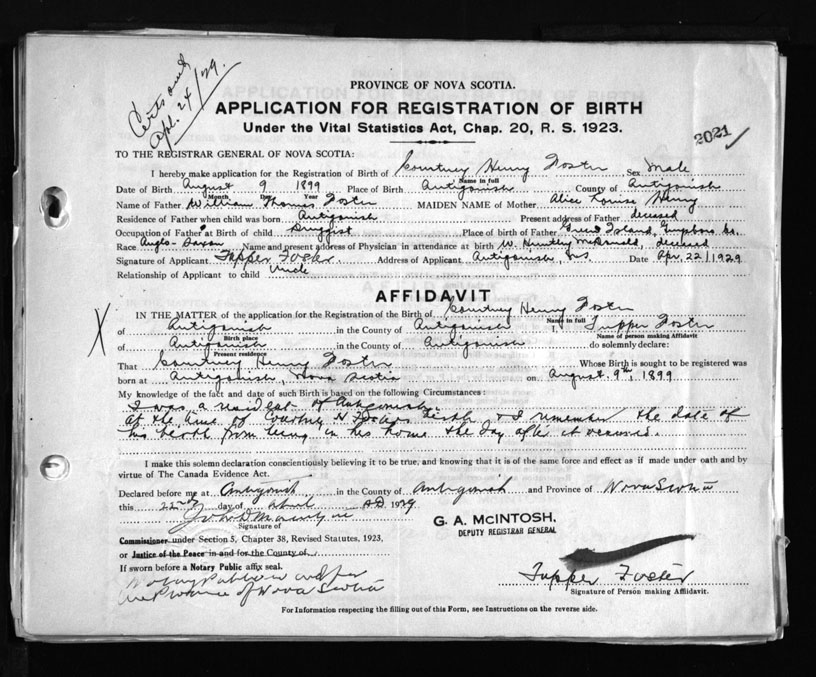 Certs and
Apl. 24/29.
PROVINCE OF NOVA SCOTIA.
APPLICATION FOR REGISTRATION OF BIRTH
Under the Vital Statistics Act, Chap. 20, R. S. 1923.
2021
TO THE REGISTRAR GENERAL OF NOVA SCOTIA:
I hereby make application for the Registration of Birth of Courtney Henry Foster Sex Male
Name in full
Date of Birth August 9 1899 Place of Birth Antigonish County of Antigonish
Month Day Year
Name of Father William Thomas Foster MAIDEN NAME of Mother Alice Louise Henry
Residence of Father when child was born Antigonish Present address of Father deceased
Occupation of Father at Birth of child Druggist Place of birth of Father Island, Guysboro Co.
Race Anglo-Saxon Name and present address of Physician in attendance at birth W. Huntley McDonald, deceased
Signature of Applicant Tupper Foster. Address of Applicant Antigonish, N.S. Date Apr. 22/1929
Relationship of Applicant to child Uncle
AFFIDAVIT
IN THE MATTER of the application for the Registration of the Birth of Courtney Henry Foster
Name in full
X
of Antigonish in the County of Antigonish I, Tupper Foster
Birth place Name of person making Affidavit
of Antigonish in the County of Antigonish do solemnly declare:
Present residence
That Courtney Henry Foster Whose Birth is sought to be registered was
born at Antigonish, Nova Scotia on August 9th, 1899
My knowledge of the fact and date of such Birth is based on the following Circumstances:
I was a resident of Antigonish
at the time of Courtney H Foster's birth & I remember the date of
his birth from being in his home the day after it occurred.
I make this solemn declaration conscientiously believing it to be true, and knowing that it is of the same force and effect as if made under oath and by
virtue of The Canada Evidence Act.
Declared before me at Antigonish in the County of Antigonish and Province of Nova Scotia
this 22nd day of April A.D. 1929
Signature of
G. A. McINTOSH,
DEPUTY REGISTRAR GENERAL
Commissioner under Section 5, Chapter 38, Revised Statutes, 1923,
or Justice of the Peace in and for the County of
If sworn before a Notary Public affix seal.
Notary Public in and for
the Province of Nova Scotia
Tupper Foster
Signature of Person making Affidavit.
For Information respecting the filling out of this Form, see Instructions on the reverse side.